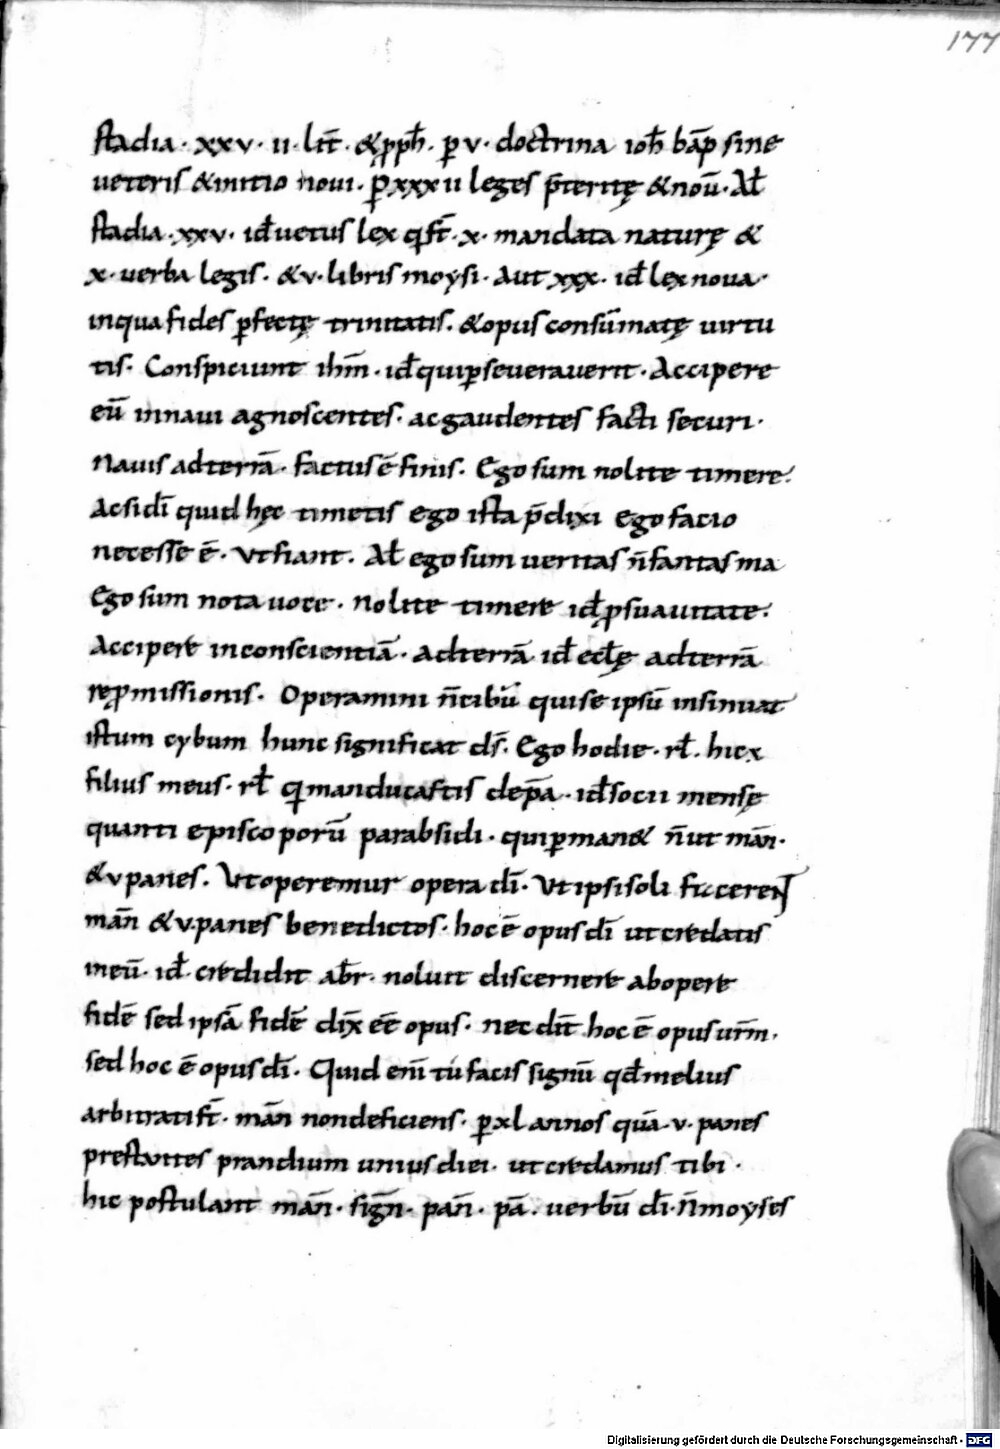 177
stadia · xxv · ii · lit̄ · & ꝓph̄ · ꝑ v · doctrina ioh̄ bāp sine
ueteris & initio noui · ꝑ xxxii leges p̄teritę & nou̅ · Al̄
stadia · xxv · id̄ uetus lex q̄ st̄ · x · mandata naturę &
x · uerba legis · & v · libris moysi · Aut xxx · id̄ lex noua ·
in qua fides ꝑfectę trinitatis · & opus consūmatę uirtu
tis · Conspiciunt ih̄m · id̄ qui ꝑseuerauerit · Accipere
eū in naui agnoscentes · ac gaudentes facti securi ·
Nauis ad terrā · factus ē finis · Ego sum nolite timere ·
Ac si dī quid hęc timetis ego ista p̄dixi ego facio
necesse ē · Vt fiant · Al̄ ego sum ueritas n̄ fantasma
Ego sum nota uoce · nolite timere id̄ ꝓ suauitate ·
Accipere in conscientiā · ad terrā id̄ eccl̄ę ad terrā
reꝓmissionis · Operamini n̄ cibū qui se ipsū insinuat
istum cybum hunc significat ds̄ · Ego hodie · rl̄ · hic x
filius meus · rl̄ q̄ manducastis de pā · id̄ socii mensę
quanti episcoporū parabsidi · qui ꝑman& n̄ ut mān ·
& v panes · Vt operemur opera dī · Vt ipsi soli facerent
mān & v · panes benedictos · hoc ē opus dī ut credatis
in eū · id̄ · credidit abr̄ · noluit discernere ab opere
fidē sed ipsā fidē dix̄ eē opus · nec dit̄ hoc ē opus ur̄m ·
sed hoc ē opus dī · Quid eni̅ tu facis signū qd̄ melius
arbitrati st̄ · mān non deficiens · ꝑ xl annos quā · v · panes
prestantes prandium unius diei · ut credamus tibi ·
hic postulant mān · sign̄ · pan̄ · pā · uerbū dī · n̄ moyses
Digitalisierung gefördert durch die Deutsche Forschungsgemeinschaft - DFG